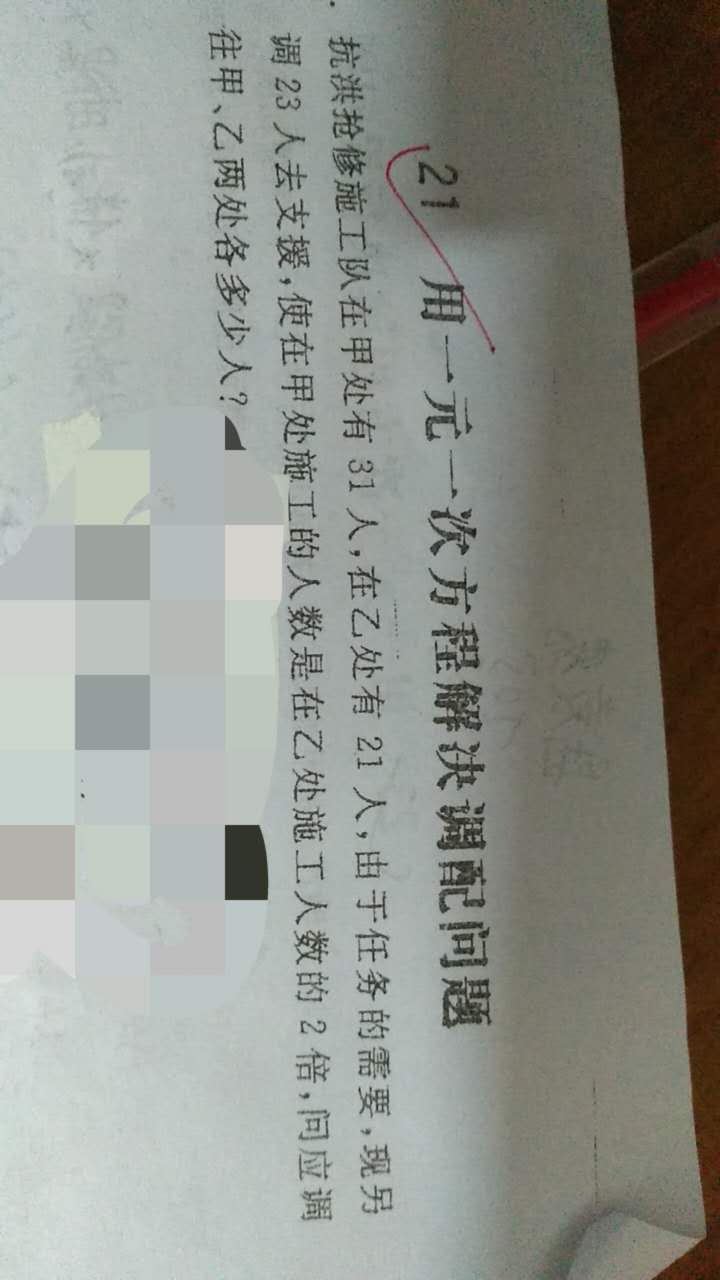 21 用一元一次方程解决调配问题
. 抗洪抢修施工队在甲处有 31 人,在乙处有 21 人,由于任务的需要,现另
调 23 人去支援,使在甲处施工的人数是在乙处施工人数的 2 倍,问应调
往甲、乙两处各多少人?